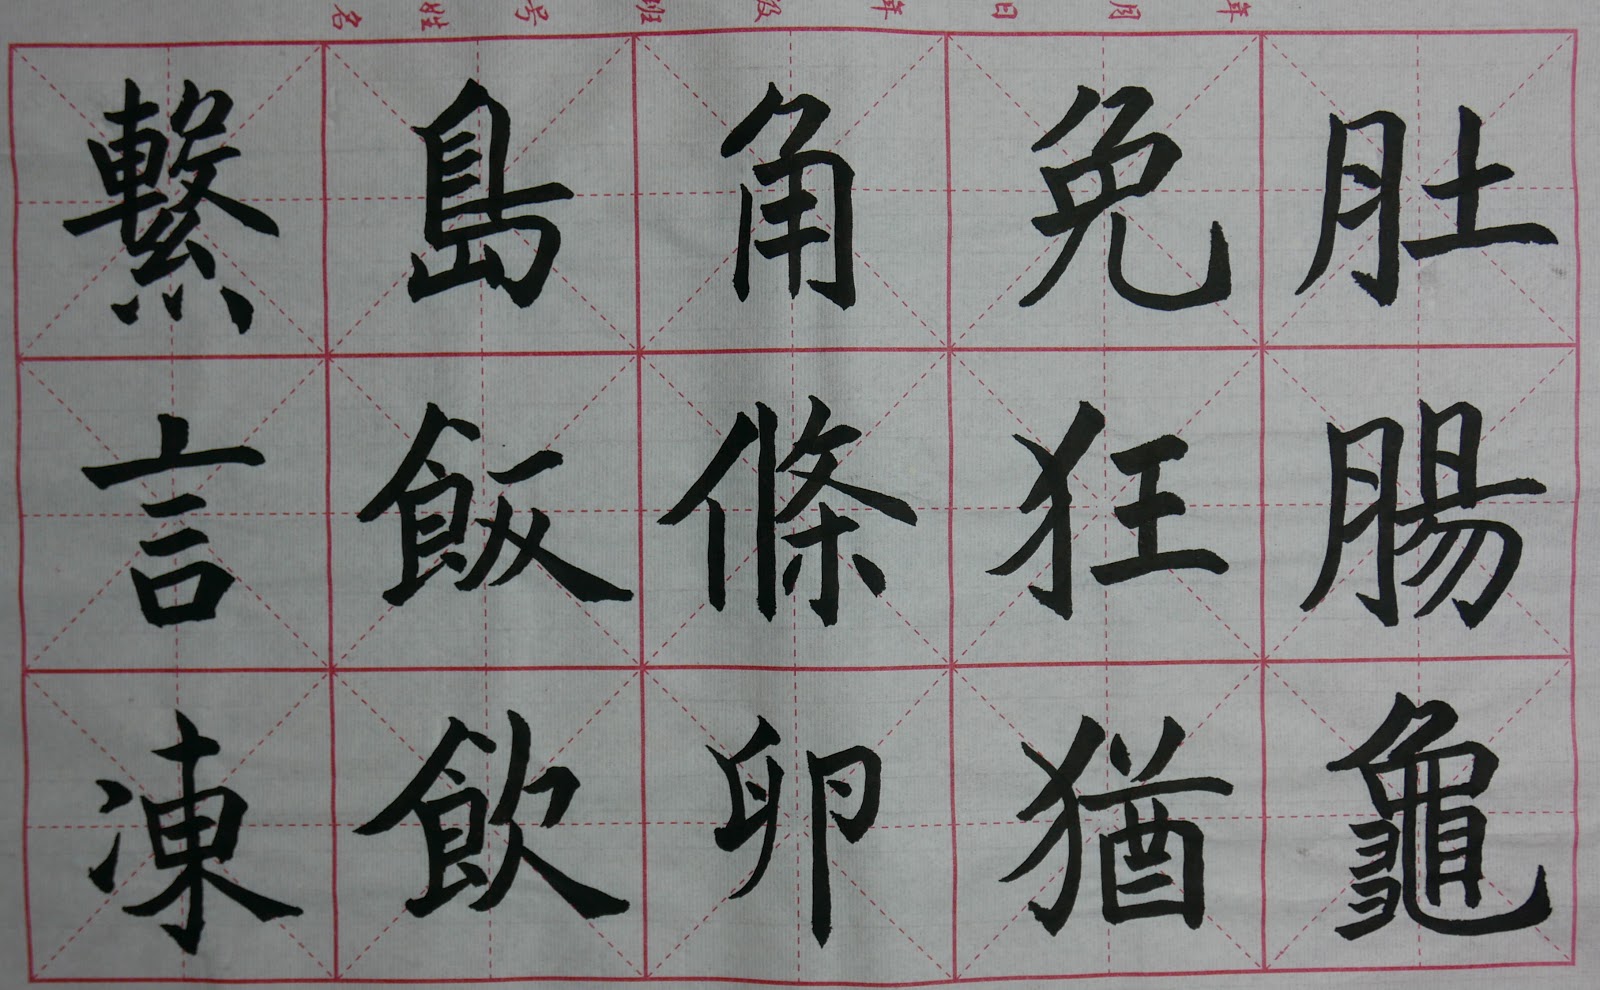 年 月 日 年级 班 号 姓名
肚腸龜
免狂猶
角條卵
島飯飲
繫言凍